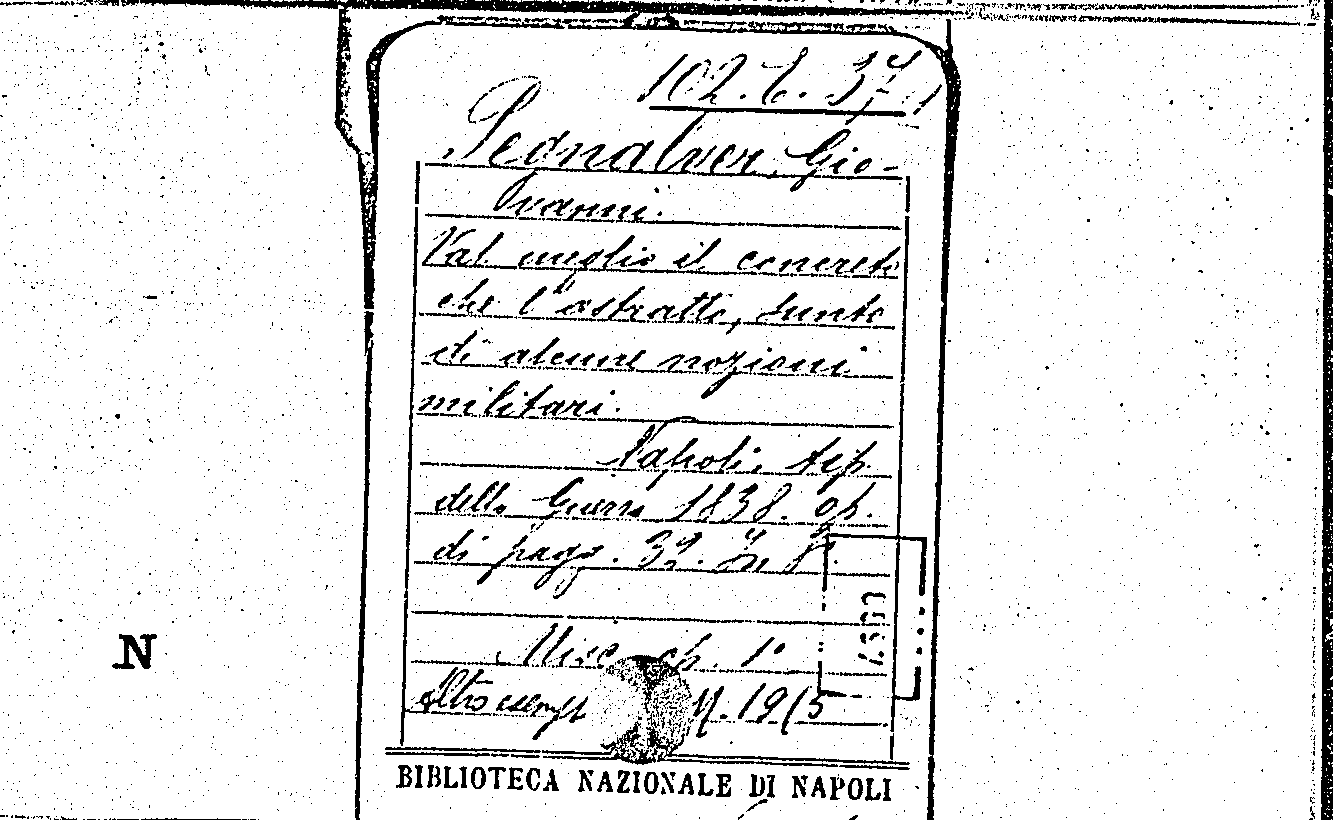 102. E. 37
Pegnalver, Gio-
vanni.
Val meglio il concreto
che l'astratto, sunto
di alcune nozioni
militari.
Napoli, tip.
della Guerra 1838. op.
di pagg. 32. In 8º.
Misc. op. 1º
Altro esempl
BIBLIOTECA NAZIONALE DI NAPOLI
N